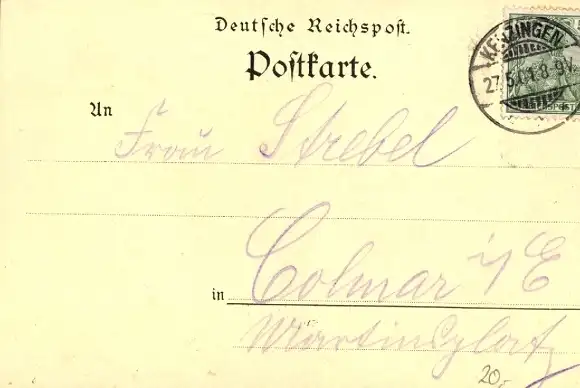 Deutsche Reichspost.
Postkarte.
KENZINGEN.
27.5.01.8-9V.
An Frau Strebel
in Colmar i/E
Martinsplatz
20,-